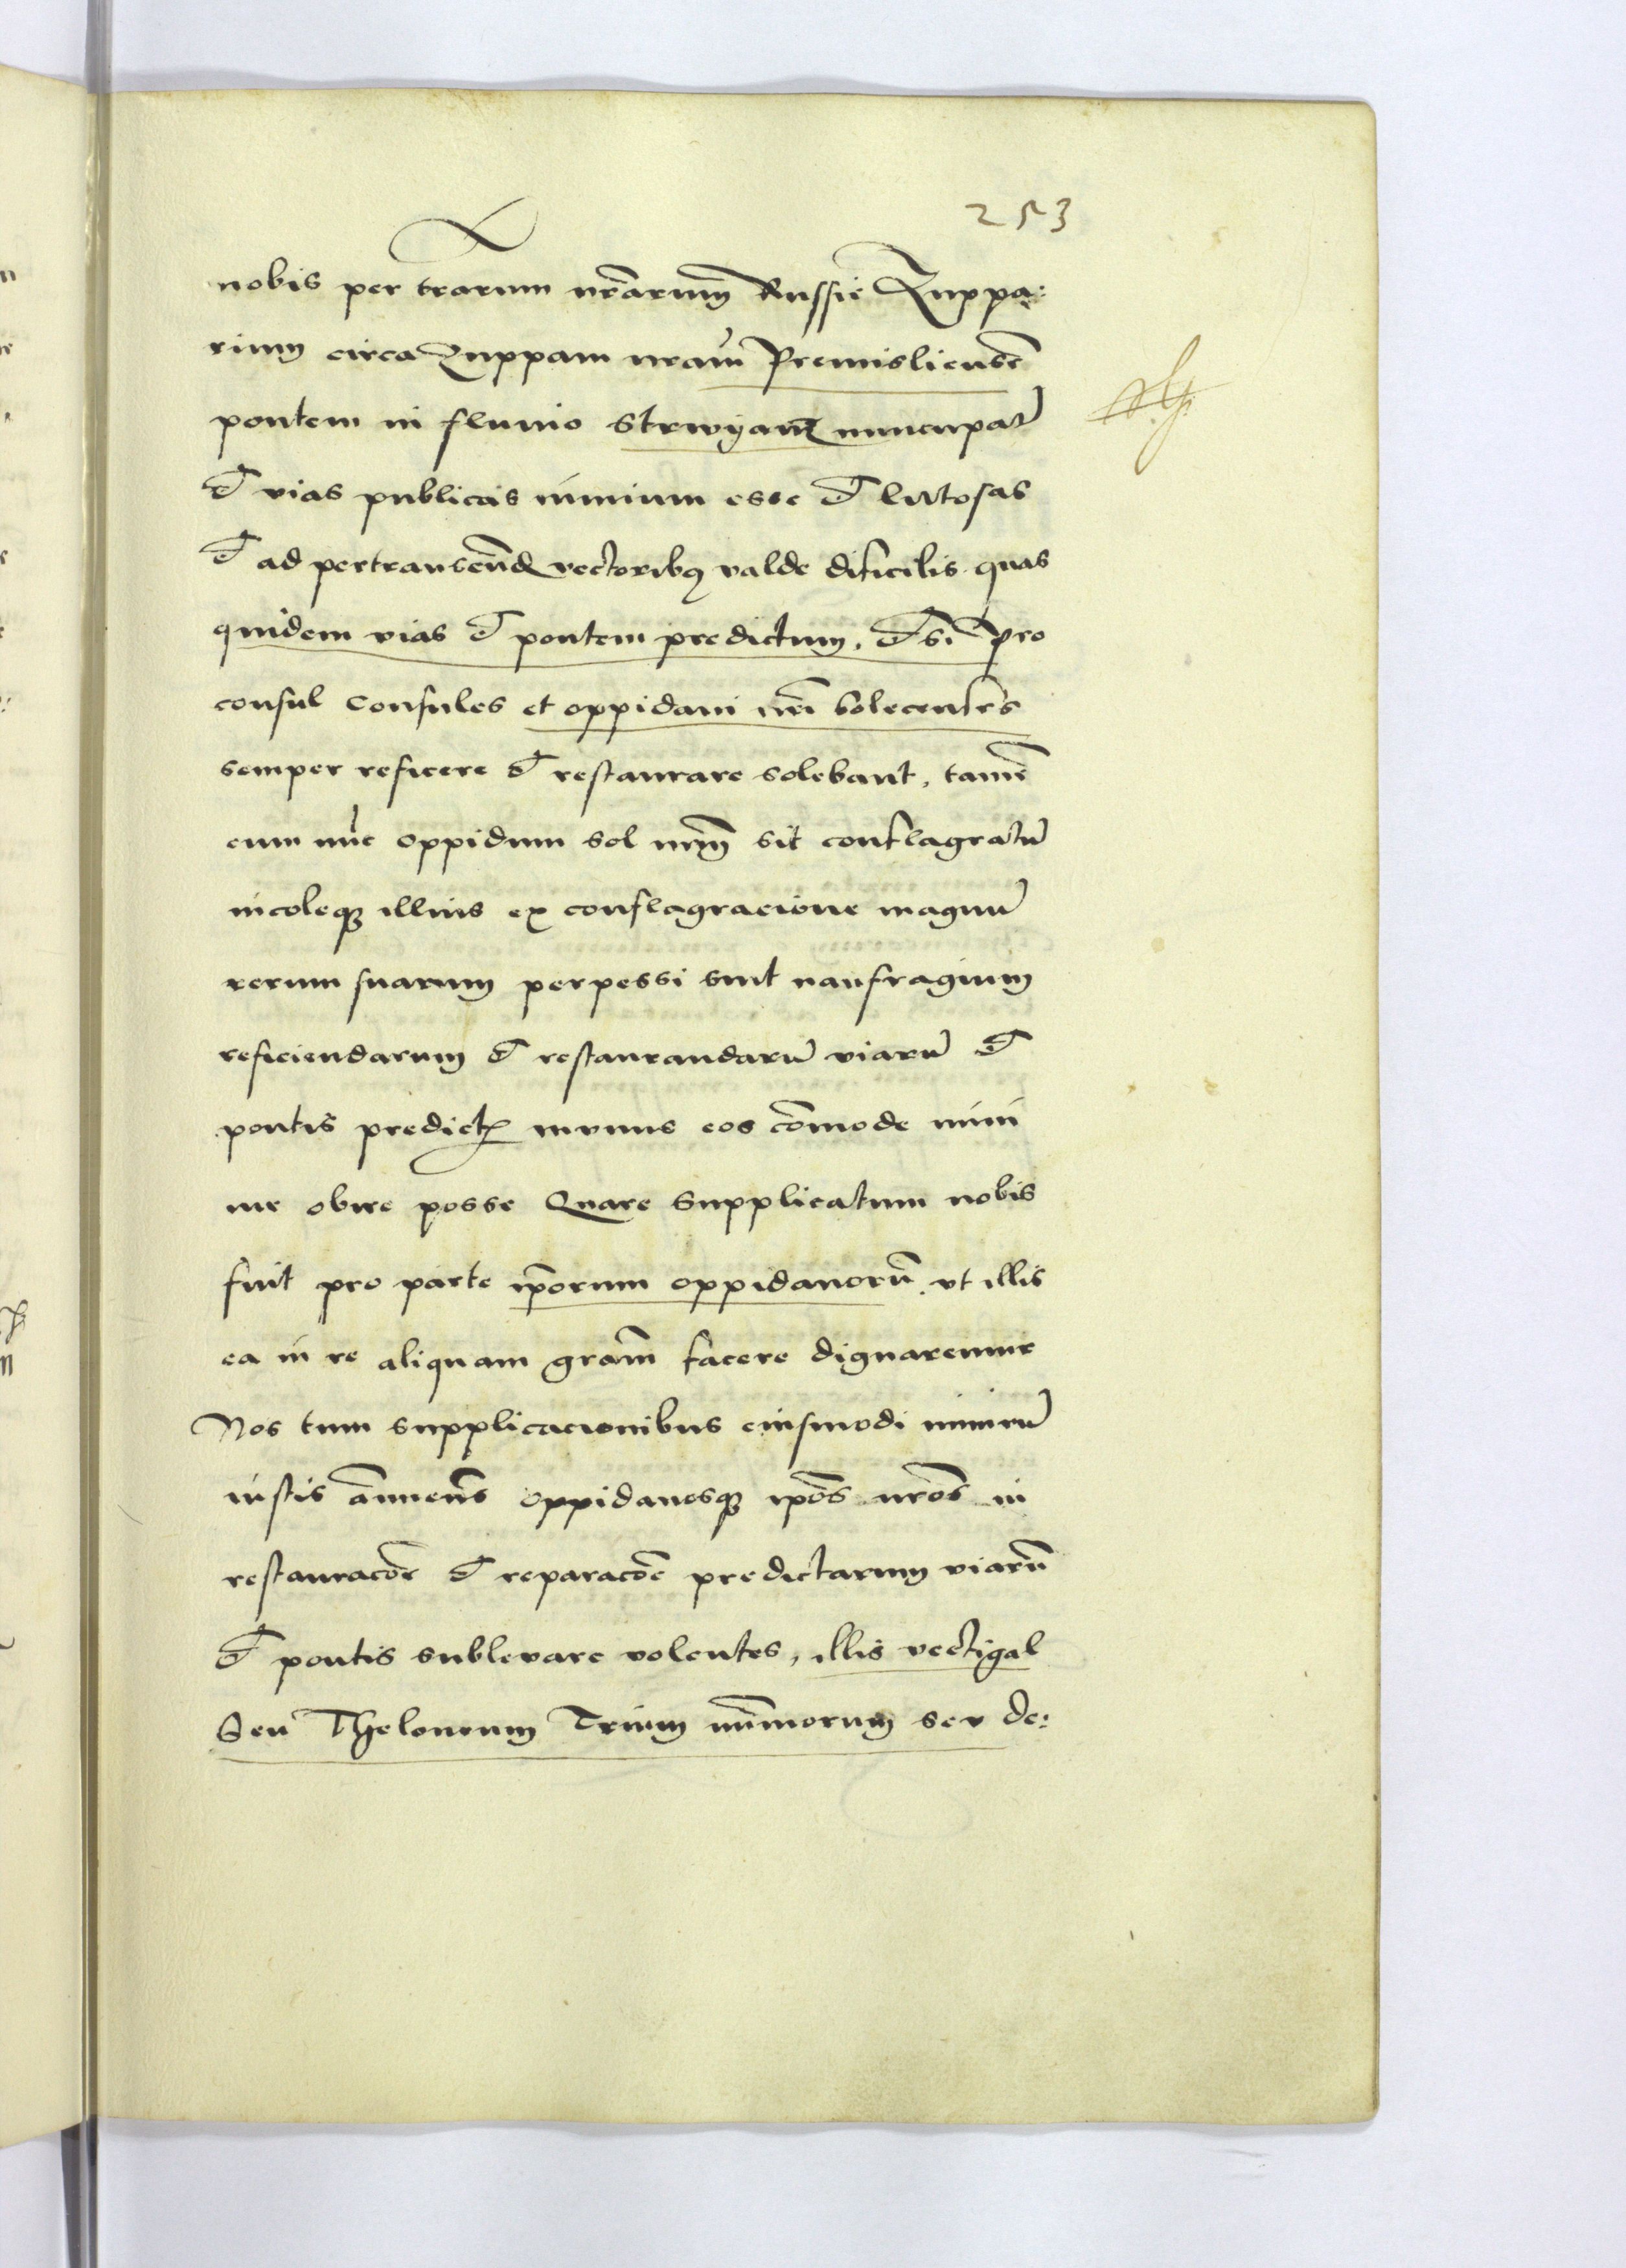 253
nobis per trarum nrarum Russie Zuppa:
rium circa Zuppam nram Premisliensē
pontem in fluuio Strwyanz nuncupat
et vias publicas nimium esse et lutosas
et ad pertranseūd vectoribꝫ valde dificilis quas
quidem vias et pontem predictum, et si pro
consul Consules et oppidani nri solecenses
semper reficere et restaurare solebant, tamē
cum nūc oppidum sol nrm̄ sit conflagratū
incoleqꝫ illius ex conflagracione magnū
rerum suarum perpessi sint naufragium
reficiendarum et restaurandarū viarū et
pontis predicti munus eos cōmode mini
me obire posse Quare Supplicatum nobis
fuit pro parte ip̄orum oppidanorū vt illis
ea in re aliquam gram̄ facere dignaremur
Nos tum supplicacionibus eiusmodi nimirū
iustis annuen̄s oppidanosqꝫ ip̄os nros̄ in
restauracōe et reparacōe predictarum viarū
et pontis sublevare volentes, illis vectigal
Seu Theloneum Trium nūmorum seu de: